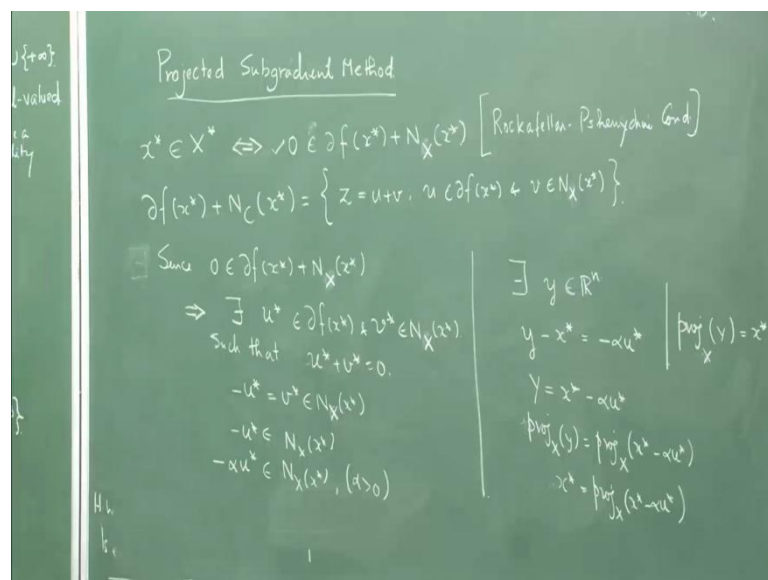 ∪{+∞}
l-valued
e a
lity
Projected Subgradient Method
x* ∈ X* ⇔ 0 ∈ ∂f(x*) + N_X(x*) [Rockafellar-Pshenychni Cond]
∂f(x*) + N_C(x*) = { z = u+v, u ∈ ∂f(x*) & v ∈ N_X(x*) }
Since 0 ∈ ∂f(x*) + N_X(x*)
⇒ ∃ u* ∈ ∂f(x*) & v* ∈ N_X(x*)
Such that u* + v* = 0.
-u* = v* ∈ N_X(x*)
-u* ∈ N_X(x*)
-αu* ∈ N_X(x*), (α>0)
∃ y ∈ ℝⁿ
y - x* = -αu* | proj_X(y) = x*
y = x* - αu*
proj_X(y) = proj_X(x* - αu*)
x* = proj_X(x* - αu*)